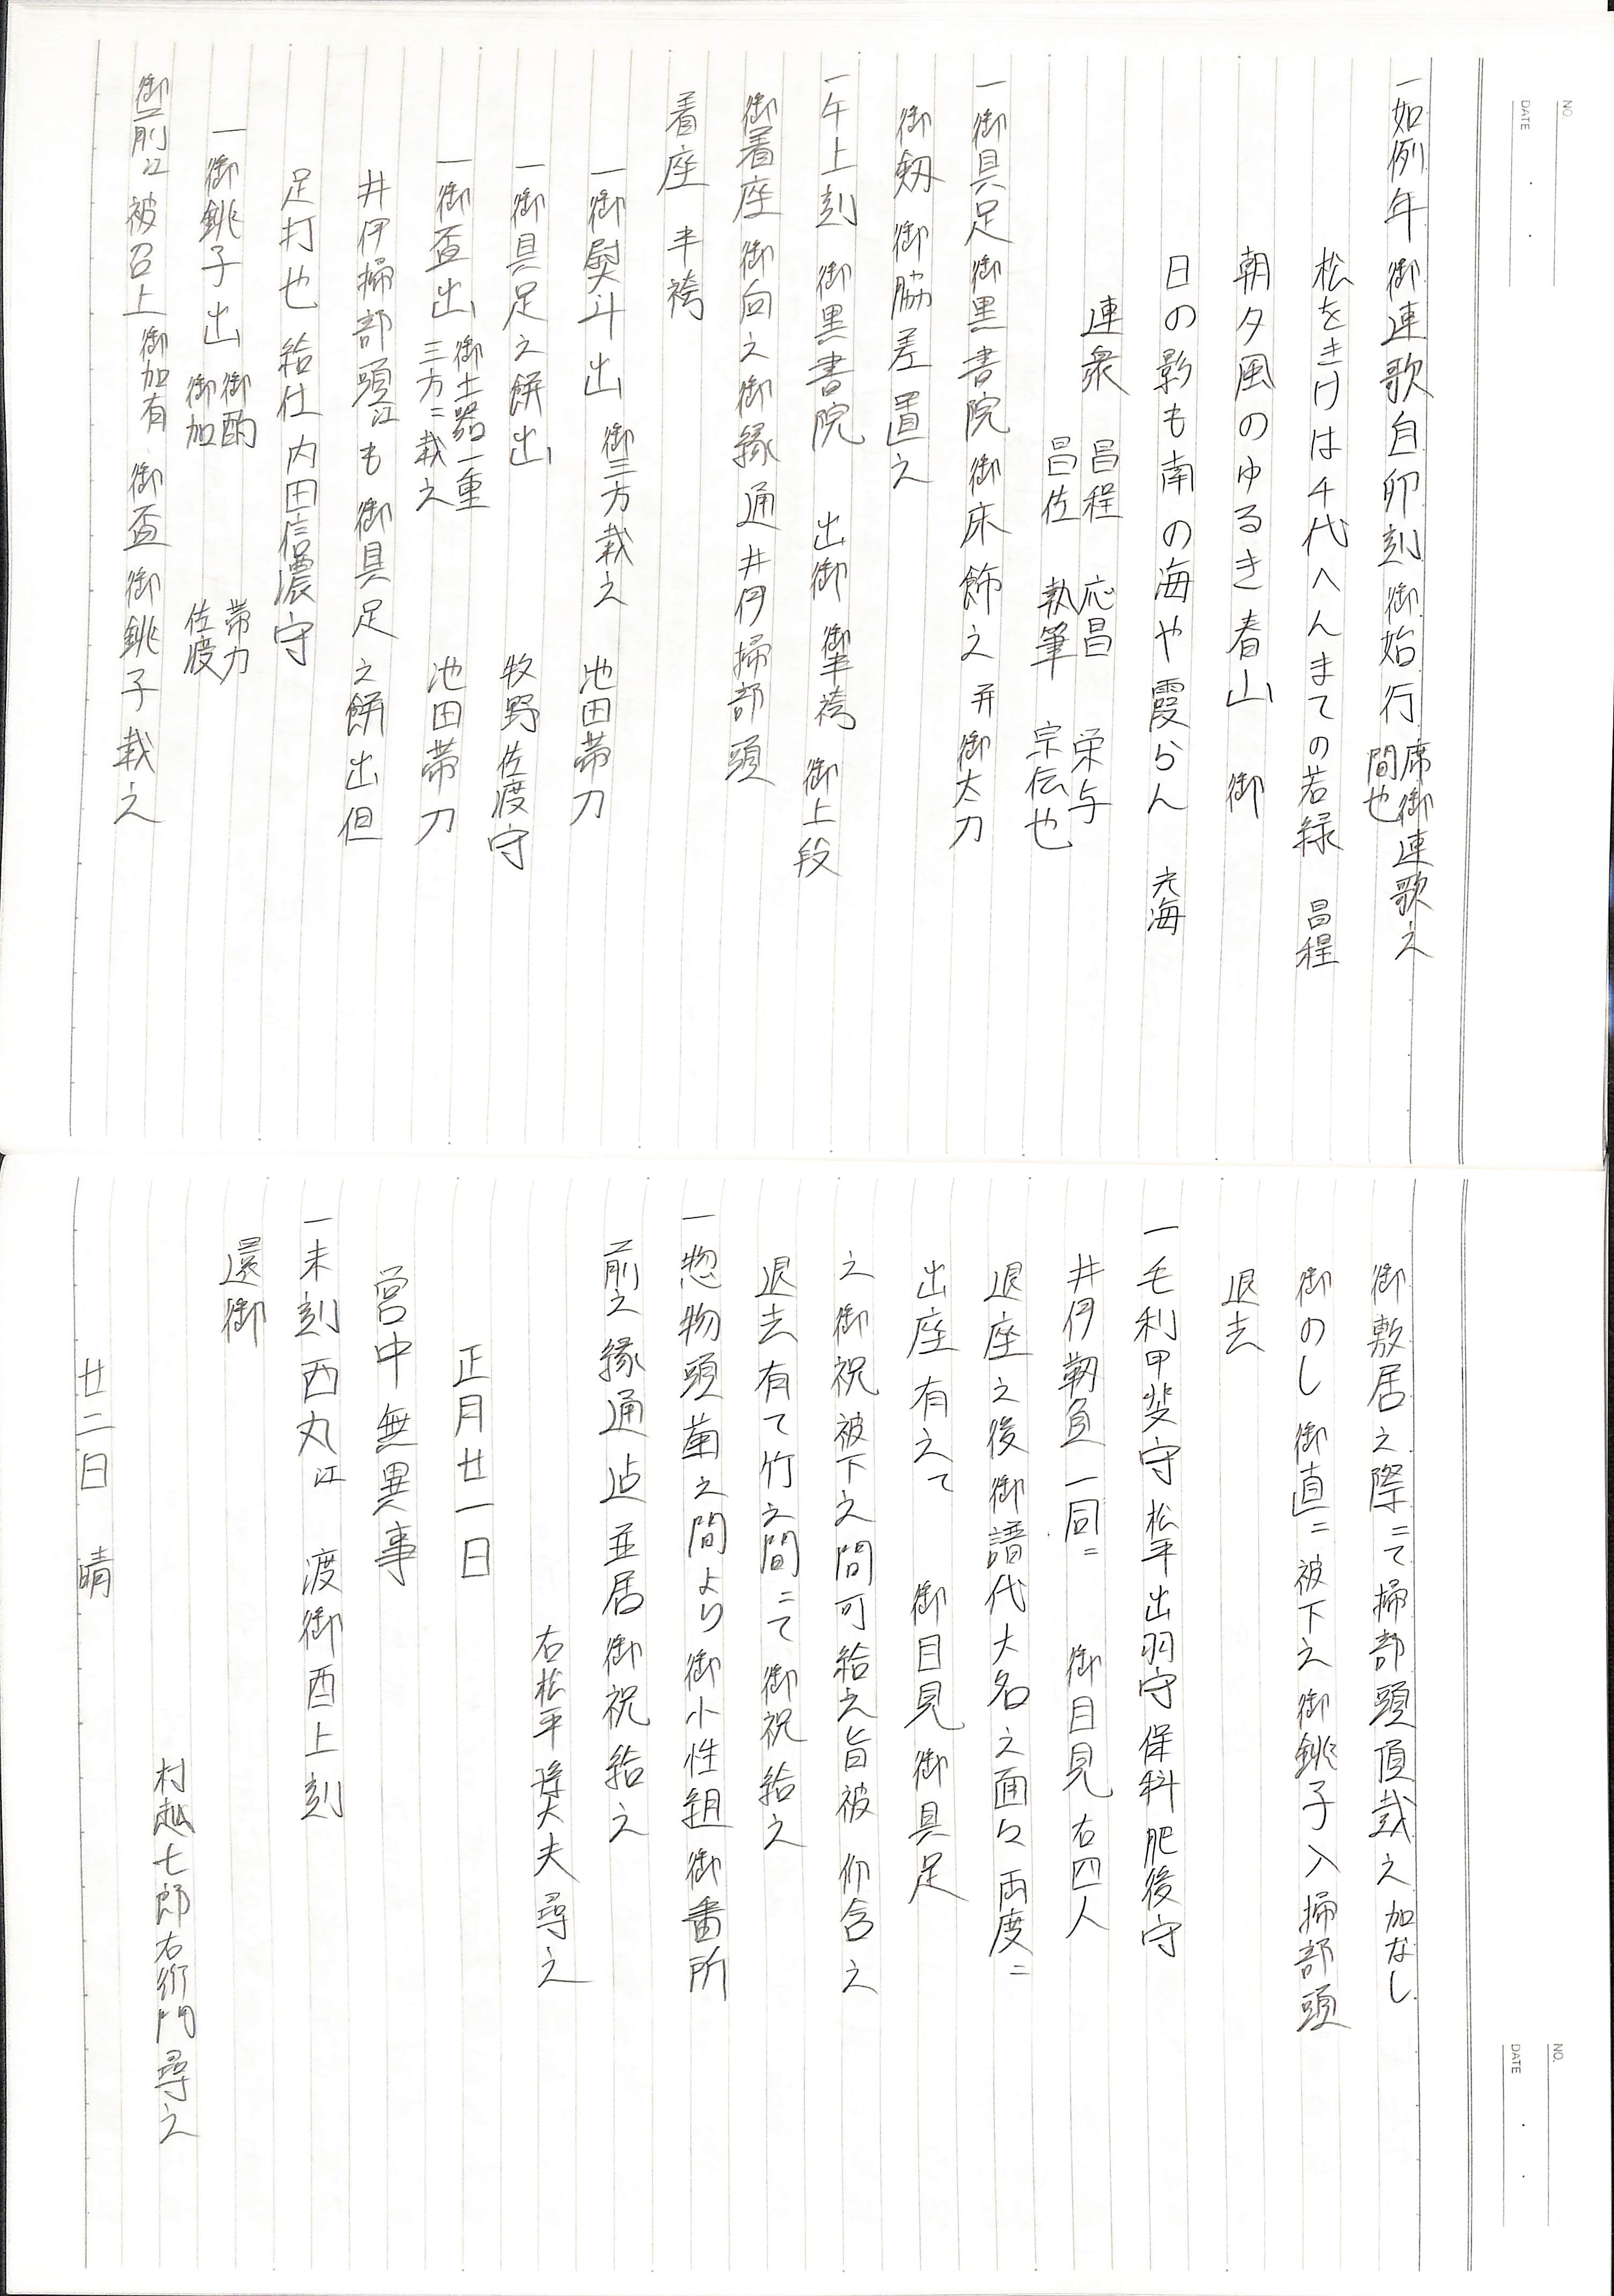 NO.
DATE
一如例年 御連歌自卯刻 御始行 席御連歌之
間也
松をきけは千代へんまての若緑 昌程
朝夕風のゆるき春山 御
日の影も南の海や霞らん 元海
連衆 昌程 応昌 栄与
昌佐 執筆 宗伝也
一御具足 御黒書院 御床 飾之 并 御太刀
御剱 御脇差 置之
一午上刻 御黒書院 出御 御半袴 御上段
御着座 御向之御縁通 井伊掃部頭
着座 半袴
一御熨斗出 御三方載之 池田帯刀
一御具足之餅出 牧野佐渡守
一御盃出 御土器一重 池田帯刀
三方ニ載之
井伊掃部頭江も 御具足之餅出 但
足打也 給仕 内田信濃守
一御銚子出 御酌 帯刀
御加 佐渡
御前江被召上 御加有 御盃 御銚子載之
NO.
DATE
御敷居之際ニて掃部頭頂戴之 加なし
御のし 御直ニ被下之 御銚子入 掃部頭
退去
一毛利甲斐守 松平出羽守 保科肥後守
井伊靱負 一同ニ 御目見 右四人
退座之後 御譜代大名之面々 両度ニ
出座有之て 御目見 御具足
之御祝被下之間可給之旨被 仰含之
退去有て竹之間ニて 御祝給之
一惣物頭菊之間より御小性組御番所
前之縁通迠並居 御祝給之
右松平隼夫尋之
正月廿一日
宮中無異事
一未刻西丸江 渡御 酉上刻
還御
村越七郎右衛門尋之
廿二日 晴